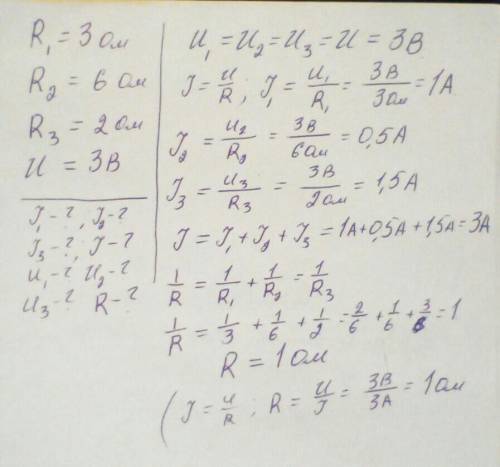 R₁ = 3 Ом
R₂ = 6 Ом
R₃ = 2 Ом
U = 3В
J₁ - ?, J₂ - ?
J₃ - ?, J - ?
U₁ - ? U₂ - ?
U₃ - ? R - ?
U₁ = U₂ = U₃ = U = 3В
J = U/R ; J₁ = U₁/R₁ = 3В/3Ом = 1А
J₂ = U₂/R₂ = 3В/6Ом = 0,5А
J₃ = U₃/R₃ = 3В/2Ом = 1,5А
J = J₁ + J₂ + J₃ = 1А + 0,5А + 1,5А = 3А
1/R = 1/R₁ + 1/R₂ = 1/R₃
1/R = 1/3 + 1/6 + 1/2 = 2/6 + 1/6 + 3/6 = 1
R = 1 Ом
( J = U/R ; R = U/J = 3В/3А = 1 Ом